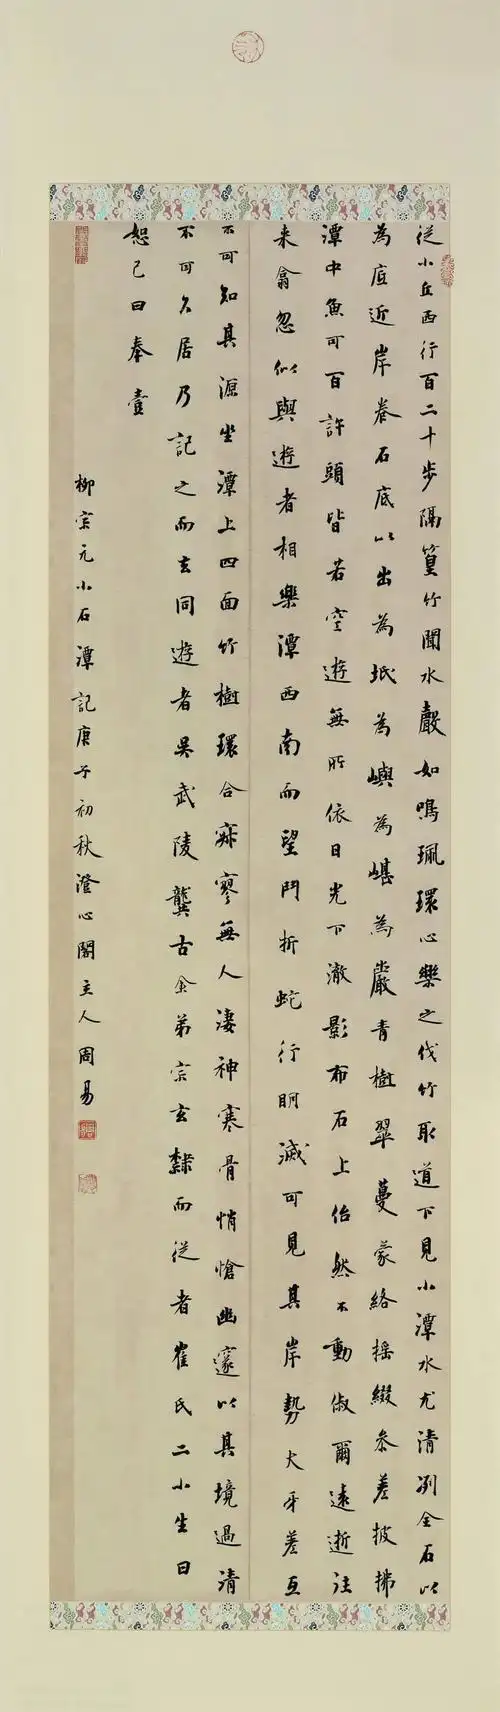 從小丘西行百二十步隔篁竹聞水聲如鳴珮環心樂之伐竹取道下見小潭水尤清冽全石以
為底近岸卷石底以出為坻為嶼為嵁為巖青樹翠蔓蒙絡搖綴參差披拂
潭中魚可百許頭皆若空遊無所依日光下澈影布石上佁然不動俶爾遠逝往
来翕忽似與遊者相樂潭西南而望鬥折蛇行明滅可見其岸勢犬牙差互
不可知其源坐潭上四面竹樹環合寂寥無人凄神寒骨悄愴幽邃以其境過清
不可久居乃記之而去同遊者吳武陵龔古余弟宗玄隸而從者崔氏二小生曰
恕己曰奉壹
柳宗元小石潭記庚子初秋澄心閣主人周易